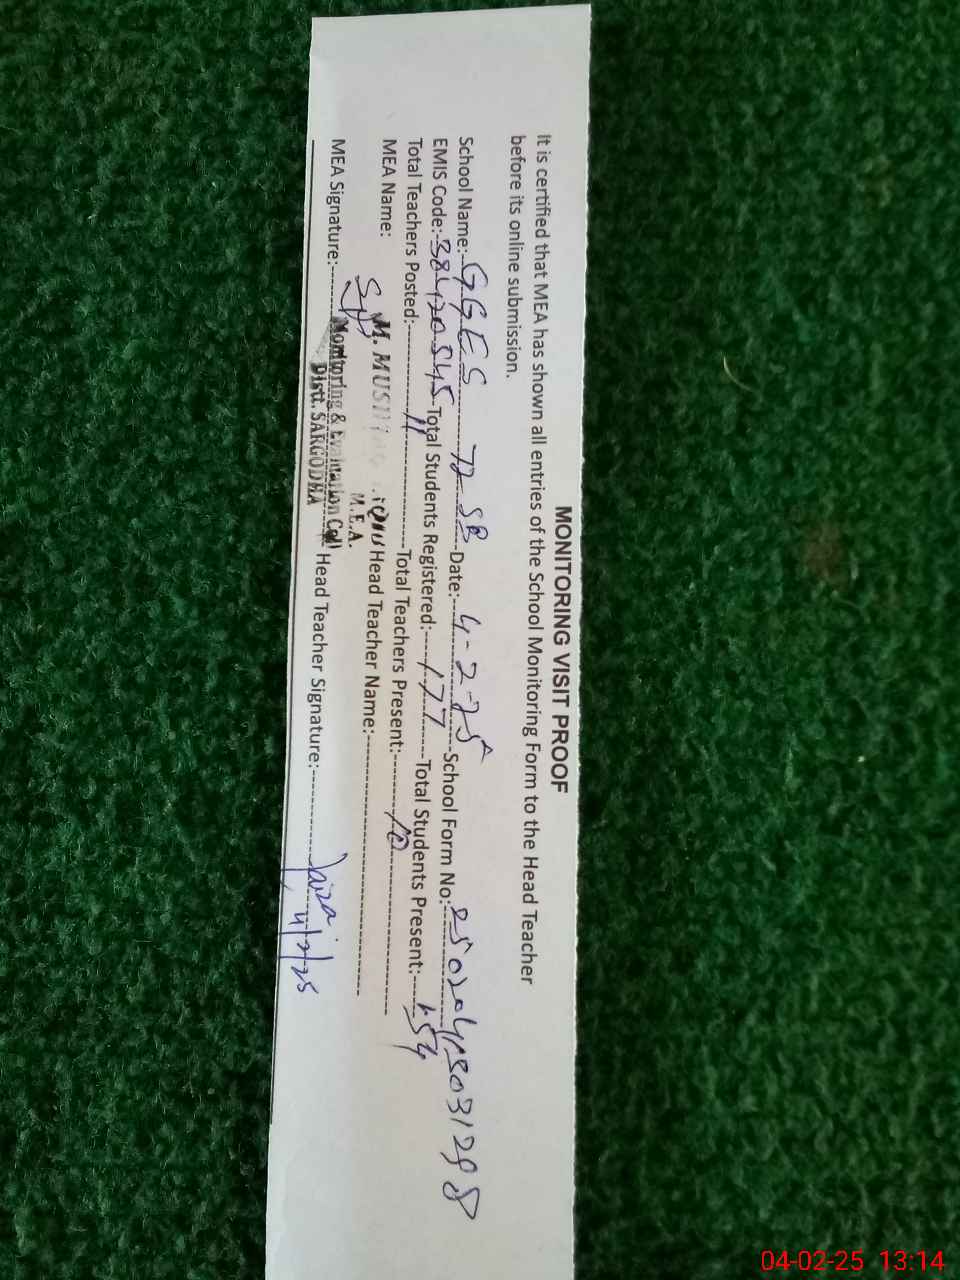 MONITORING VISIT PROOF
It is certified that MEA has shown all entries of the School Monitoring Form to the Head Teacher
before its online submission.
School Name:- GGES 72 SB Date: 4-2-25 School Form No:
EMIS Code:- 38420545 Total Students Registered: 177 Total Students Present: 154
Total Teachers Posted: 11 Total Teachers Present: 10
MEA Name: M. Head Teacher Name:
M.E.A.
MEA Signature: Monitoring & Evaluation Cell Head Teacher Signature: 4/2/25
Distt. SARGODHA
04-02-25 13:14